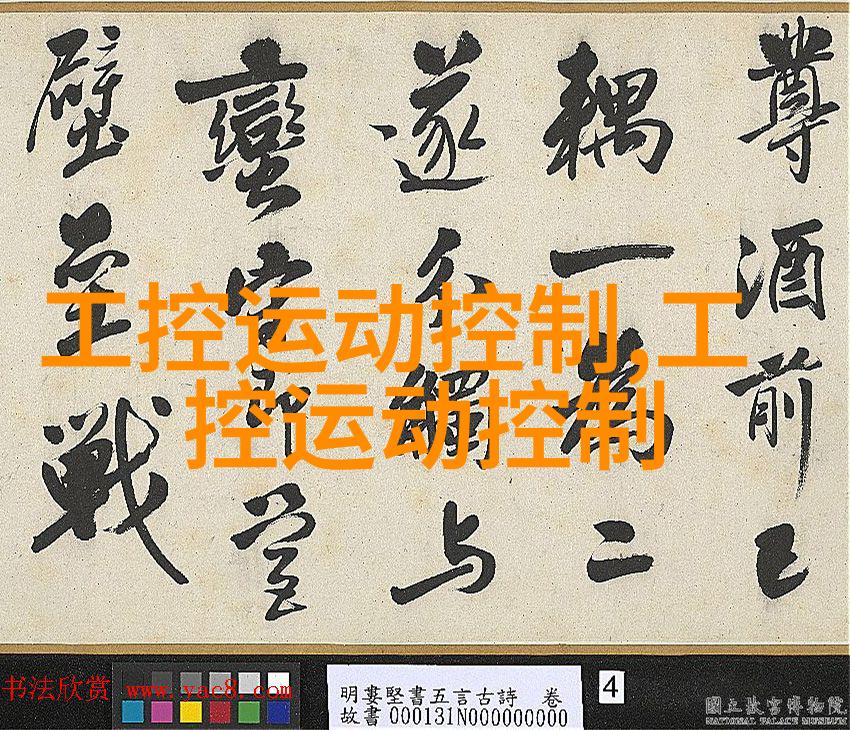 尊酒前已
耦一為二
遂与
蠻即營
壁壘戰
工控运动控制,工
控运动控制
书法欣赏 www.yac8.com
明婁堅書五言古詩 卷
故書000131N000000000
4
國立故宮博物院
NATIONAL PALACE MUSEUM